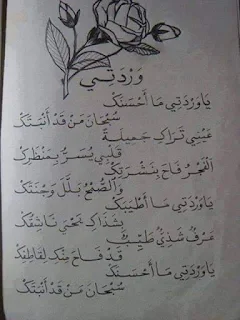 وَرْدَتِي
يَاوَرْدَتِي مَا أَحْسَنَكْ
سُبْحَانَ مَنْ قَدْ أَنْبَتَكْ
عَيْنِي تَرَاكِ جَمِيلَةً
قَلْبِي يُسَرُّ بِمَنْظَرِكْ
اَلْفَجْرُ فَاحَ بِنَشْرَتِكْ
وَالصُّبْحُ بَلَّلَ وَجْنَتَكْ
يَاوَرْدَتِي مَا أَطْيَبَكْ
بِشَذَاكِ يَحْيَ نَاشِقُكْ
عَرْفٌ شَذِيٌّ طَيِّبٌ
قَدْ فَاحَ مِنْكِ لِقَاطِفِكْ
يَاوَرْدَتِي مَا أَحْسَنَكْ
سُبْحَانَ مَنْ قَدْ أَنْبَتَكْ